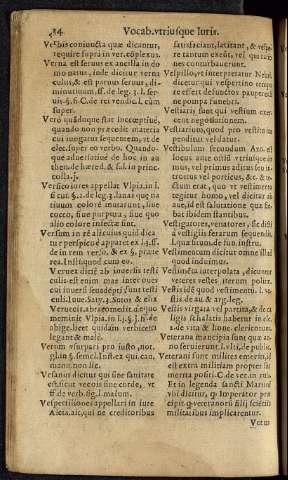 84 Vocab. vtriusque Iuris.
Verbis coniuncta quæ dicantur,
require supra in ver. cōplexus.
Verna est seruus ex ancilla in do
mo natus, inde dicitur verna
culus, & est paruus seruus, di-
minutiuum, ff. de leg. 3. l. ser-
uis. §. fi. C. de rei vendic. l. cùm
super.
Verò quādoque stat inceptiuè,
quando non præcedit materia
cui iungatur sequentem, vt de
elec. super eo verbo. Quando-
que aduersatiuè de hoc in au
then. de hæred. & fal. in princ.
colla. j.
Versicolores appellat Vlpia. in l.
si cui §. 2. de leg. 3. lanas quæ na
tiuum colorē mutarunt, siue
cocco, siue purpura, siue quo
alio colore infectæ sint.
Versum in rē alicuius quid dica
tur perspicuè apparet ex l. 3. ff.
de in rem verso, & ex §. præte
rea. Inst. quod cum eo.
Veruex dicit ab inuersis testi
culis: est enim mas inter oues
cui inuersi seu adepti sunt testi
culi. Iuue. Saty. 3. Sutor & elixi
Veruecis labra comedit. de quo
meminit Vlpia. in l. 3. §. fi. de
abige. licet quidam verbi cesti
legant & malè.
Verum vsurpari pro iusto, not.
glin §. semel. Inst. ex qui. cau.
manu. non lic.
Vesanus dicitur qui sine sanitate
est, sicut vecors sine corde, vt
ff. de verb. sig. l. malum.
Vespertiliones appellari in iure
Aicta. ait, qui ne creditoribus
satisfaciant, latitant, & vespe-
re tantum exeūt, vel qui ratio
nes conturbauerunt.
Vespillo, vt interpretatur Nebri.
dicetur qui vespertino tempo
re effert defunctos paupercula
ne pompa funebri.
Vestiarij sunt qui vestium exer-
cent negotiationem.
Vestiarium, quod pro vestitu im
penditur veldatur.
Vestibulum secundum Azo. est
locus ante ostiū vtriusque in
mus, vel primus aditus seu in-
troitus vel porticus, &c. & di-
ctum erat, quo vt vestimento
tegitur homo, vel dicitur à
aue, id est salutatione quæ fie-
bat ibidem stantibus.
Vestigatores, venatores, sic dicti
à vestigiis ferarum sequendi.
l. qui situm. de fun. instru.
Vestimentum dicitur omne illud
quod induimus.
Vestimēta interpolata, dicuntur
veteres vestes iterum polita.
Vestis idē quod vestimentū. l. ve-
stis de au & arg. leg.
Vestis virgata vel partita, de fr.
ligis scholaris habetur in ca.
2. de vita & hone. clericorum.
Veterana mancipia sunt quæ an-
no seruierunt. l. vlt. de public.
Veterani sunt milites emeriti, id
est extra militiam propter si-
metta positi. C. de veter. in rub.
Et in legenda sancti Martini
vbi dicitur, q̃ Imperator præ
cipit q̃ veteranorū filij sciētis
militaribus implicarentur.
Vetus